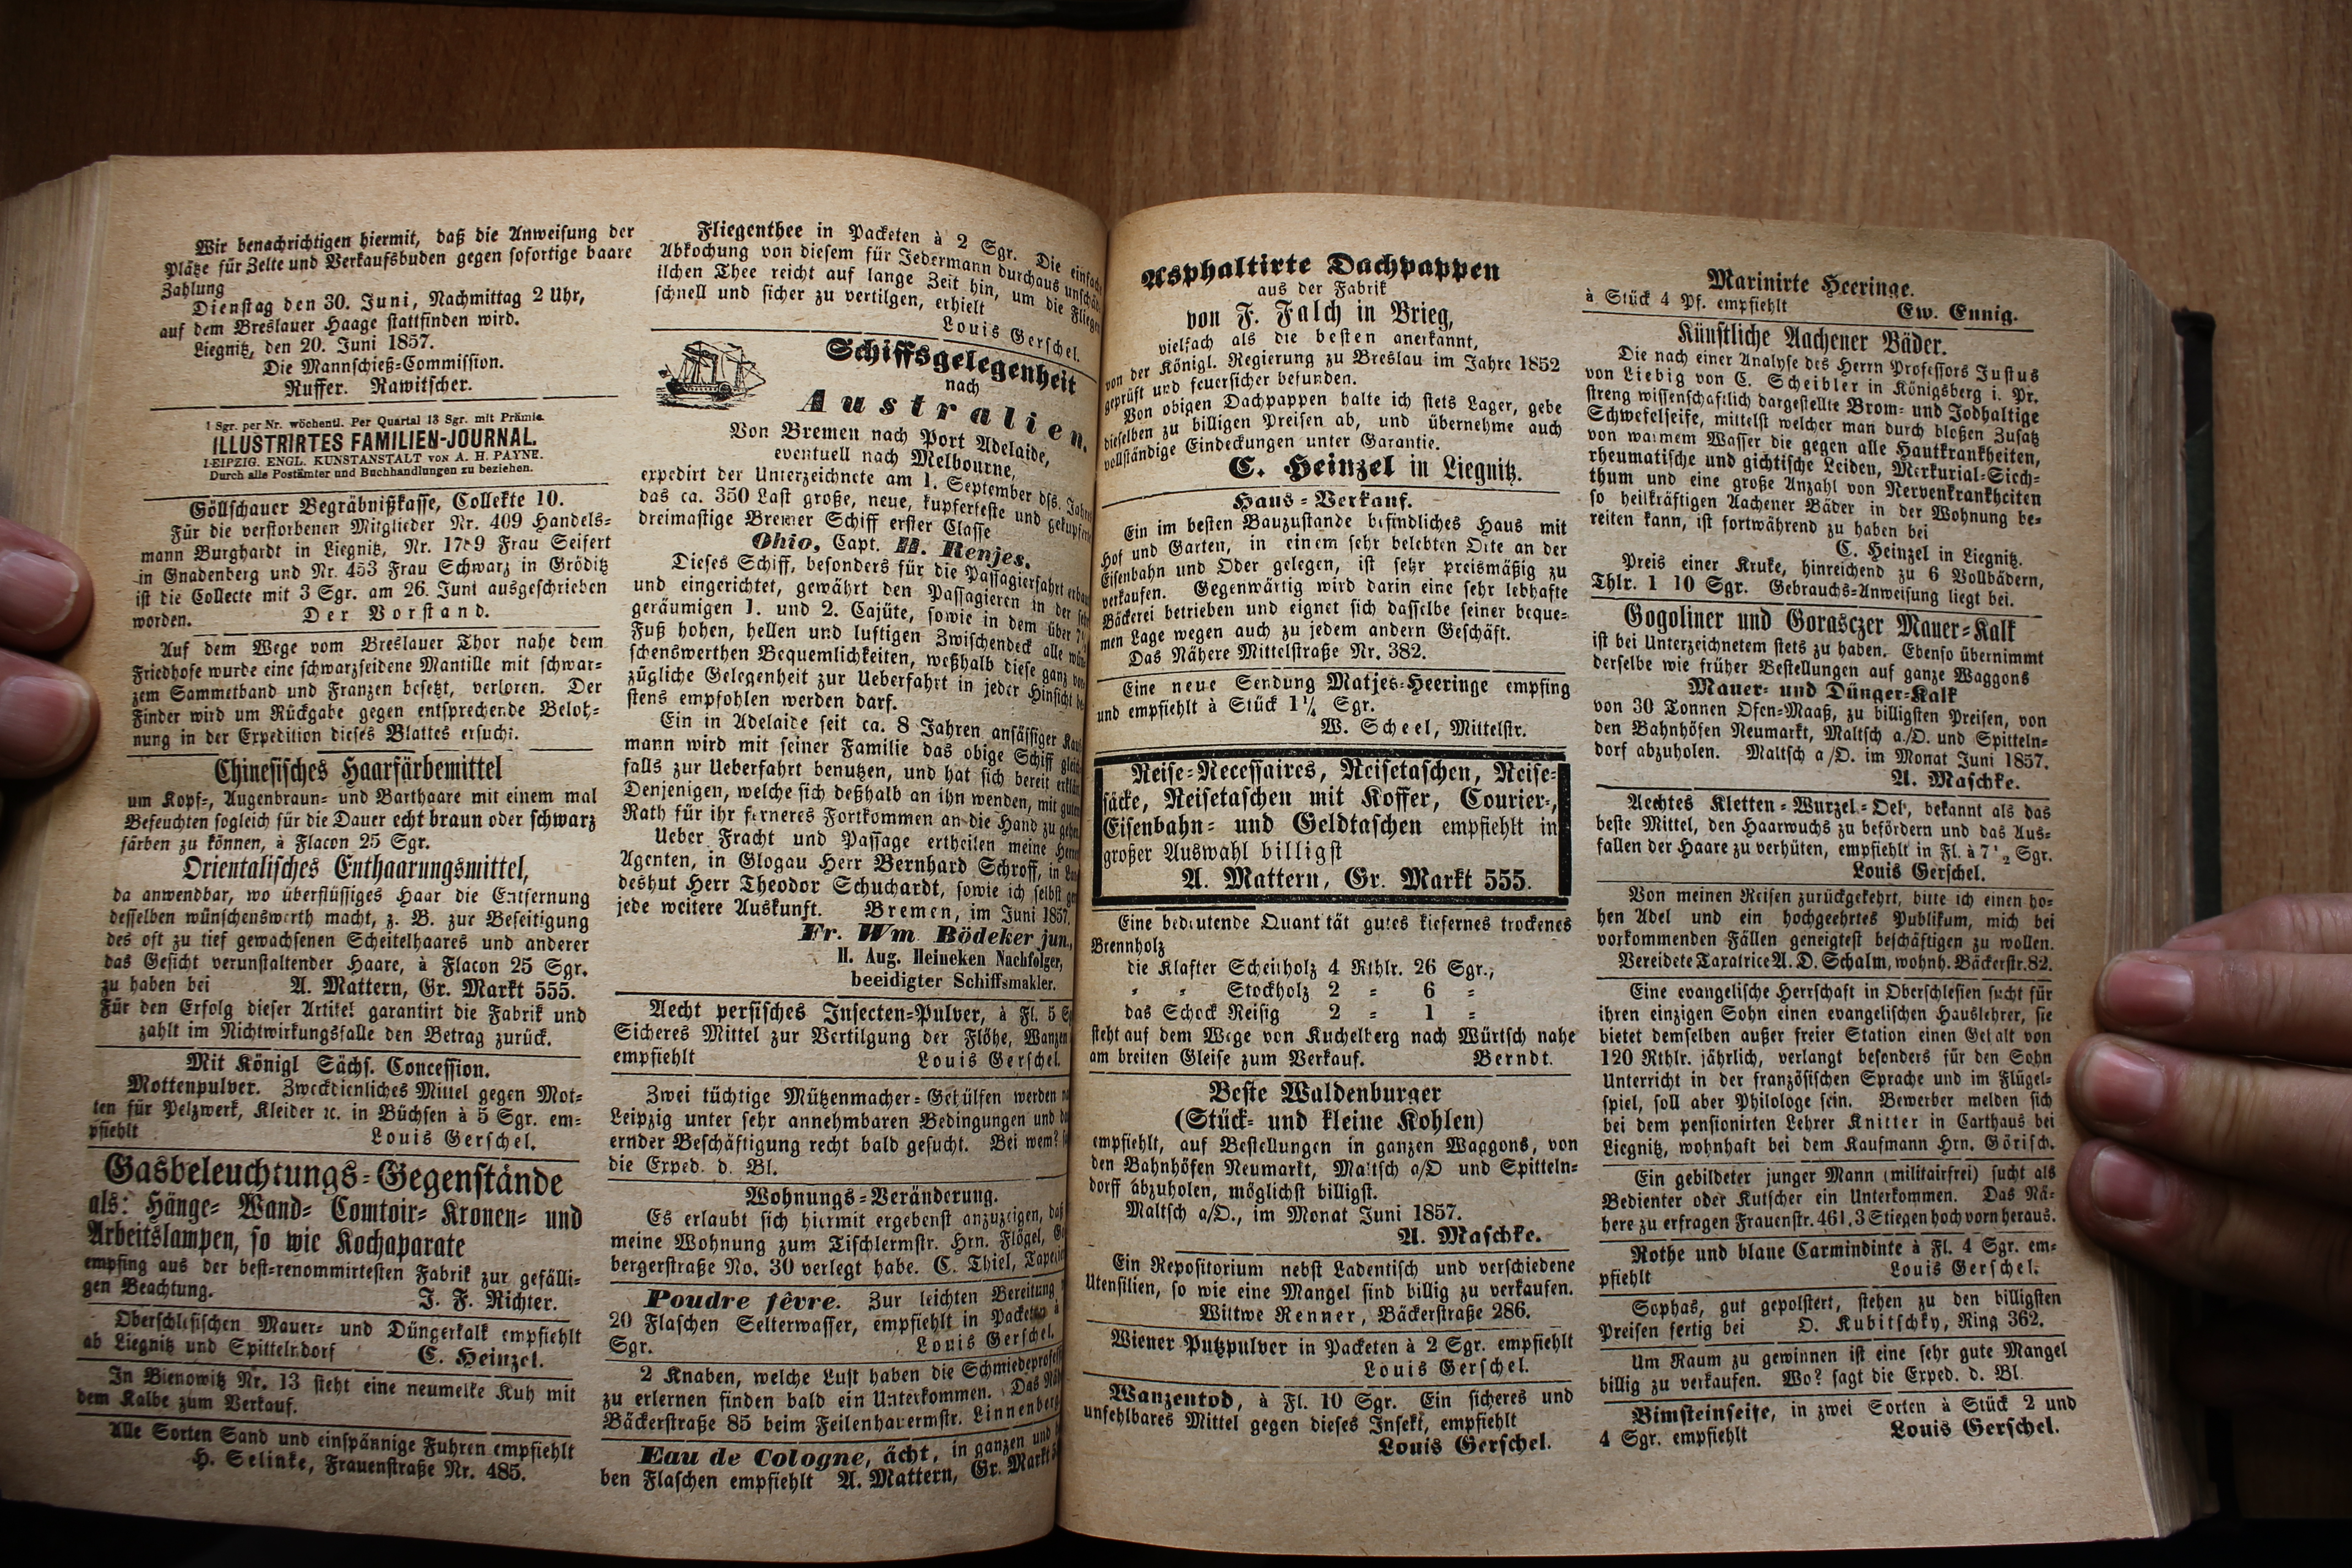 Wir benachrichtigen hiermit, daß die Anweisung der
Plätze für Zelte und Verkaufsbuden gegen sofortige baare
Zahlung
Dienstag den 30. Juni, Nachmittag 2 Uhr,
auf dem Breslauer Haage stattfinden wird.
Liegnitz, den 20. Juni 1857.
Die Mannschieß-Commission.
Ruffer. Rawitscher.
1 Sgr. per Nr. wöchentl. Per Quartal 13 Sgr. mit Prämie.
ILLUSTRIRTES FAMILIEN-JOURNAL.
LEIPZIG. ENGL. KUNSTANSTALT VON A. H. PAYNE.
Durch alle Postämter und Buchhandlungen zu beziehen.
Göllschauer Begräbnißkasse, Collekte 10.
Für die verstorbenen Mitglieder Nr. 409 Handels-
mann Burghardt in Liegnitz, Nr. Frau Seifert
in Gnadenberg und Nr. 453 Frau Schwarz in Gröditz
ist die Collecte mit 3 Sgr. am 26. Juni ausgeschrieben
worden. Der Vorstand.
Auf dem Wege vom Breslauer Thor nahe dem
Friedhofe wurde eine schwarzseidene Mantille mit schwar-
zem Sammetband und Franzen besetzt, verloren. Der
Finder wird um Rückgabe gegen entsprechende Beloh-
nung in der Expedition dieses Blattes ersucht.
Chinesisches Haarfärbemittel
um Kopf-, Augenbraun- und Barthaare mit einem mal
Befeuchten sogleich für die Dauer echt braun oder schwarz
färben zu können, à Flacon 25 Sgr.
Orientalisches Enthaarungsmittel,
da anwendbar, wo überflüssiges Haar die Entfernung
desselben wünschenswerth macht, z. B. zur Beseitigung
des oft zu tief gewachsenen Scheitelhaares und anderer
das Gesicht verunstaltender Haare, à Flacon 25 Sgr.
zu haben bei A. Mattern, Gr. Markt 555.
Für den Erfolg dieser Artikel garantirt die Fabrik und
zahlt im Nichtwirkungsfalle den Betrag zurück.
Mit Königl Sächs. Concession.
Mottenpulver. Zweckdienliches Mittel gegen Mot-
ten für Pelzwerk, Kleider ꝛc. in Büchsen à 5 Sgr. em-
pfiehlt Louis Gerschel.
Gasbeleuchtungs-Gegenstände
als: Hänge- Wand- Comtoir- Kronen- und
Arbeitslampen, so wie Kochaparate
empfing aus der best-renommirtesten Fabrik zur gefälli-
gen Beachtung. J. F. Richter.
Oberschlesischen Mauer- und Düngerkalk empfiehlt
ab Liegnitz und Spittelndorf C. Heinzel.
In Bienowitz Nr. 13 steht eine neumelke Kuh mit
dem Kalbe zum Verkauf.
Alle Sorten Sand und einspännige Fuhren empfiehlt
H. Selinke, Frauenstraße Nr. 485.
Fliegenthee in Packeten à 2 Sgr. Die einfach
Abkochung von diesem für Jedermann durchaus unschäd
ilchen Thee reicht auf lange Zeit hin, um die Fliegen
schnell und sicher zu vertilgen, erhielt
Louis Gerschel.
Schiffsgelegenheit
nach
Australien.
Von Bremen nach Port Adelaide,
eventuell nach Melbourne,
expedirt der Unterzeichnete am 1. September dss. Jahres
das ca. 350 Last große, neue, kupferfeste und gekupferte
dreimastige Bremer Schiff erster Classe
Ohio, Capt. H. Renjes.
Dieses Schiff, besonders für die Passagierfahrt erbaut
und eingerichtet, gewährt den Passagieren in der
geräumigen 1. und 2. Cajüte, sowie in dem über 7
Fuß hohen, hellen und luftigen Zwischendeck alle wün
schenswerthen Bequemlichkeiten, weßhalb diese ganz vor
zügliche Gelegenheit zur Ueberfahrt in jeder Hinsicht be
stens empfohlen werden darf.
Ein in Adelaide seit ca. 8 Jahren ansässiger Kauf
mann wird mit seiner Familie das obige Schiff gleich
falls zur Ueberfahrt benutzen, und hat sich bereit erklärt
Denjenigen, welche sich deßhalb an ihn wenden, mit gutem
Rath für ihr ferneres Fortkommen an die Hand zu gehen
Ueber Fracht und Passage ertheilen meine Herrn
Agenten, in Glogau Herr Bernhard Schroff, in Lan
deshut Herr Theodor Schuchardt, sowie ich selbst
jede weitere Auskunft. Bremen, im Juni 1857.
Fr. Wm. Bödeker jun.,
H. Aug. Heineken Nachfolger,
beeidigter Schiffsmakler.
Aecht persisches Insecten-Pulver, à Fl. 5
Sicheres Mittel zur Vertilgung der Flöhe, Wanzen
empfiehlt Louis Gerschel.
Zwei tüchtige Mützenmacher-Gehülfen werden
Leipzig unter sehr annehmbaren Bedingungen und
ernder Beschäftigung recht bald gesucht. Bei wem?
die Exped. d. Bl.
Wohnungs-Veränderung.
Es erlaubt sich hiermit ergebenst anzuzeigen, daß
meine Wohnung zum Tischlermstr. Hrn. Flögel,
bergerstraße No. 30 verlegt habe. C. Thiel,
Poudre fêvre. Zur leichten Bereitung
20 Flaschen Selterwasser, empfiehlt in Packeten à
Sgr. Louis Gerschel.
2 Knaben, welche Lust haben die
zu erlernen finden bald ein Unterkommen. Das
Bäckerstraße 85 beim Feilenhauermstr. Linnenberg
Eau de Cologne, ächt, in ganzen und
ben Flaschen empfiehlt A. Mattern, Gr. Markt
Asphaltirte Dachpappen
aus der Fabrik
von F. Falch in Brieg,
vielfach als die besten anerkannt,
von der Königl. Regierung zu Breslau im Jahre 1852
geprüft und feuersicher befunden.
Von obigen Dachpappen halte ich stets Lager, gebe
dieselben zu billigen Preisen ab, und übernehme auch
vollständige Eindeckungen unter Garantie.
C. Heinzel in Liegnitz.
Haus-Verkauf.
Ein im besten Bauzustande befindliches Haus mit
Hof und Garten, in einem sehr belebten Orte an der
Eisenbahn und Oder gelegen, ist sehr preismäßig zu
verkaufen. Gegenwärtig wird darin eine sehr lebhafte
Bäckerei betrieben und eignet sich dasselbe seiner beque-
men Lage wegen auch zu jedem andern Geschäft.
Das Nähere Mittelstraße Nr. 382.
Eine neue Sendung Matjes-Heeringe empfing
und empfiehlt à Stück 1¼ Sgr.
W. Scheel, Mittelstr.
Reise-Necessaires, Reisetaschen, Reise-
säcke, Reisetaschen mit Koffer, Courier-,
Eisenbahn- und Geldtaschen empfiehlt in
großer Auswahl billigst
A. Mattern, Gr. Markt 555.
Eine bedeutende Quantität gutes kiefernes trockenes
Brennholz
die Klafter Scheitholz 4 Rthlr. 26 Sgr.,
" " Stockholz 2 = 6 =
das Schock Reisig 2 = 1 =
steht auf dem Wege von Kuchelberg nach Würtsch nahe
am breiten Gleise zum Verkauf. Berndt.
Beste Waldenburger
(Stück- und kleine Kohlen)
empfiehlt, auf Bestellungen in ganzen Waggons, von
den Bahnhöfen Neumarkt, Maltsch a/O und Spitteln-
dorff abzuholen, möglichst billigst.
Maltsch a/O., im Monat Juni 1857.
A. Maschke.
Ein Repositorium nebst Ladentisch und verschiedene
Utensilien, so wie eine Mangel sind billig zu verkaufen.
Wittwe Renner, Bäckerstraße 286.
Wiener Putzpulver in Packeten à 2 Sgr. empfiehlt
Louis Gerschel.
Wanzentod, à Fl. 10 Sgr. Ein sicheres und
unfehlbares Mittel gegen dieses Insekt, empfiehlt
Louis Gerschel.
Marinirte Heeringe.
à Stück 4 Pf. empfiehlt Ew. Ennig.
Künstliche Aachener Bäder.
Die nach einer Analyse des Herrn Professors Justus
von Liebig von C. Scheibler in Königsberg i. Pr.
streng wissenschaftlich dargestellte Brom- und Jodhaltige
Schwefelseife, mittelst welcher man durch bloßen Zusatz
von warmem Wasser die gegen alle Hautkrankheiten,
rheumatische und gichtische Leiden, Merkurial-Siech-
thum und eine große Anzahl von Nervenkrankheiten
so heilkräftigen Aachener Bäder in der Wohnung be-
reiten kann, ist fortwährend zu haben bei
C. Heinzel in Liegnitz.
Preis einer Kruke, hinreichend zu 6 Vollbädern,
Thlr. 1 10 Sgr. Gebrauchs-Anweisung liegt bei.
Gogoliner und Gorasczer Mauer-Kalk
ist bei Unterzeichnetem stets zu haben. Ebenso übernimmt
derselbe wie früher Bestellungen auf ganze Waggons
Mauer- und Dünger-Kalk
von 30 Tonnen Ofen-Maaß, zu billigsten Preisen, von
den Bahnhöfen Neumarkt, Maltsch a./O. und Spitteln-
dorf abzuholen. Maltsch a/O. im Monat Juni 1857.
A. Maschke.
Aechtes Kletten-Wurzel-Oel, bekannt als das
beste Mittel, den Haarwuchs zu befördern und das Aus-
fallen der Haare zu verhüten, empfiehlt in Fl. à 7½ Sgr.
Louis Gerschel.
Von meinen Reisen zurückgekehrt, bitte ich einen ho-
hen Adel und ein hochgeehrtes Publikum, mich bei
vorkommenden Fällen geneigtest beschäftigen zu wollen.
Vereidete Taxatrice A. D. Schalm, wohnh. Bäckerstr. 82.
Eine evangelische Herrschaft in Oberschlesien sucht für
ihren einzigen Sohn einen evangelischen Hauslehrer, sie
bietet demselben außer freier Station einen Gehalt von
120 Rthlr. jährlich, verlangt besonders für den Sohn
Unterricht in der französischen Sprache und im Flügel-
spiel, soll aber Philologe sein. Bewerber melden sich
bei dem pensionirten Lehrer Knitter in Carthaus bei
Liegnitz, wohnhaft bei dem Kaufmann Hrn. Görisch.
Ein gebildeter junger Mann (militairfrei) sucht als
Bedienter oder Kutscher ein Unterkommen. Das Nä-
here zu erfragen Frauenstr. 461, 3 Stiegen hoch vorn heraus.
Rothe und blaue Carmindinte à Fl. 4 Sgr. em-
pfiehlt Louis Gerschel.
Sophas, gut gepolstert, stehen zu den billigsten
Preisen fertig bei O. Kubitschky, Ring 362.
Um Raum zu gewinnen ist eine sehr gute Mangel
billig zu verkaufen. Wo? sagt die Exped. d. Bl.
Bimsteinseife, in zwei Sorten à Stück 2 und
4 Sgr. empfiehlt Louis Gerschel.